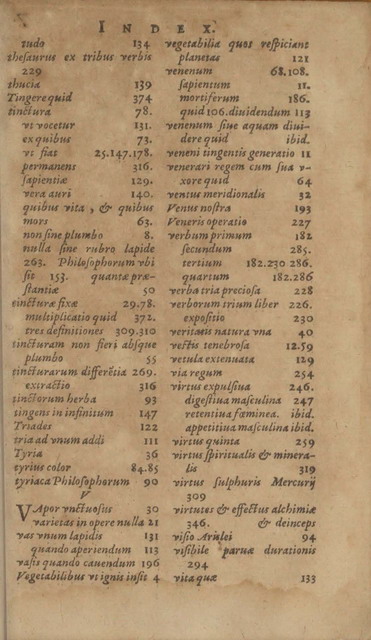 INDEX.
tudo 134
thesaurus ex tribus verbis
229
thucia 139
Tingere quid 374
tinctura 78.
vt vocetur 131.
ex quibus 73.
vt fiat 25.147.178.
permanens 316.
sapientiæ 129.
vera auri 140.
quibus vita, & quibus
mors 63.
non sine plumbo 8.
nulla sine rubro lapide
263. Philosophorum vbi
sit 153. quantæ præ-
stantiæ 50
tincturæ fixæ 29.78.
multiplicatio quid 372.
tres definitiones 309.310
tincturam non fieri absque
plumbo 55
tincturarum differẽtia 269.
extractio 316
tinctorum herba 93
tingens in infinitum 147
Triades 122
tria ad vnum addi 111
Tyria 36
tyrius color 84.85
tyriaca Philosophorum 90
V
VApor vnctuosus 30
varietas in opere nulla 21
vas vnum lapidis 131
quando aperiendum 113
vasis quando cauendum 196
Vegetabilibus vt ignis insit 4
vegetabilia quos respiciant
planetas 121
venenum 68.108.
sapientum 11.
mortiferum 186.
quid 106. diuidendum 113
venenum siue aquam diui-
dere quid ibid.
veneni tingentis generatio 11
venerari regem cum sua v-
xore quid 64
ventus meridionalis 32
Venus nostra 193
Veneris operatio 227
verbum primum 182
secundum 285.
tertium 182.230.286.
quartum 182.286
verba tria preciosa 228
verborum trium liber 226.
expositio 230
veritatis natura vna 40
vectis tenebrosa 12.59
vetula extenuata 129
via regum 254
virtus expulsiua 246.
digestiua masculina 247
retentiua fœminea. ibid.
appetitiua masculina ibid.
virtus quinta 259
virtus spiritualis & minera-
lis 319
virtus sulphuris Mercurij
309
virtutes & effectus alchimiæ
346. & deinceps
visio Arislei 94
visibile paruæ durationis
294
vita quæ 133